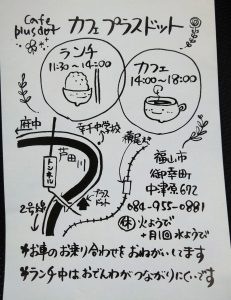 Cafe plusdot
カフェプラスドット
ランチ
11:30〜14:00
カフェ
14:00〜18:00
府中
幸千中学校
芦田川
トンネル
プラスドット
2号線
福山市
御幸町
中津原672
084-955-0881
休 火ようび
+月1回 水ようび
お車のお乗り合わせをおねがいしてます
ランチ中はおでんわがつながりにくいです